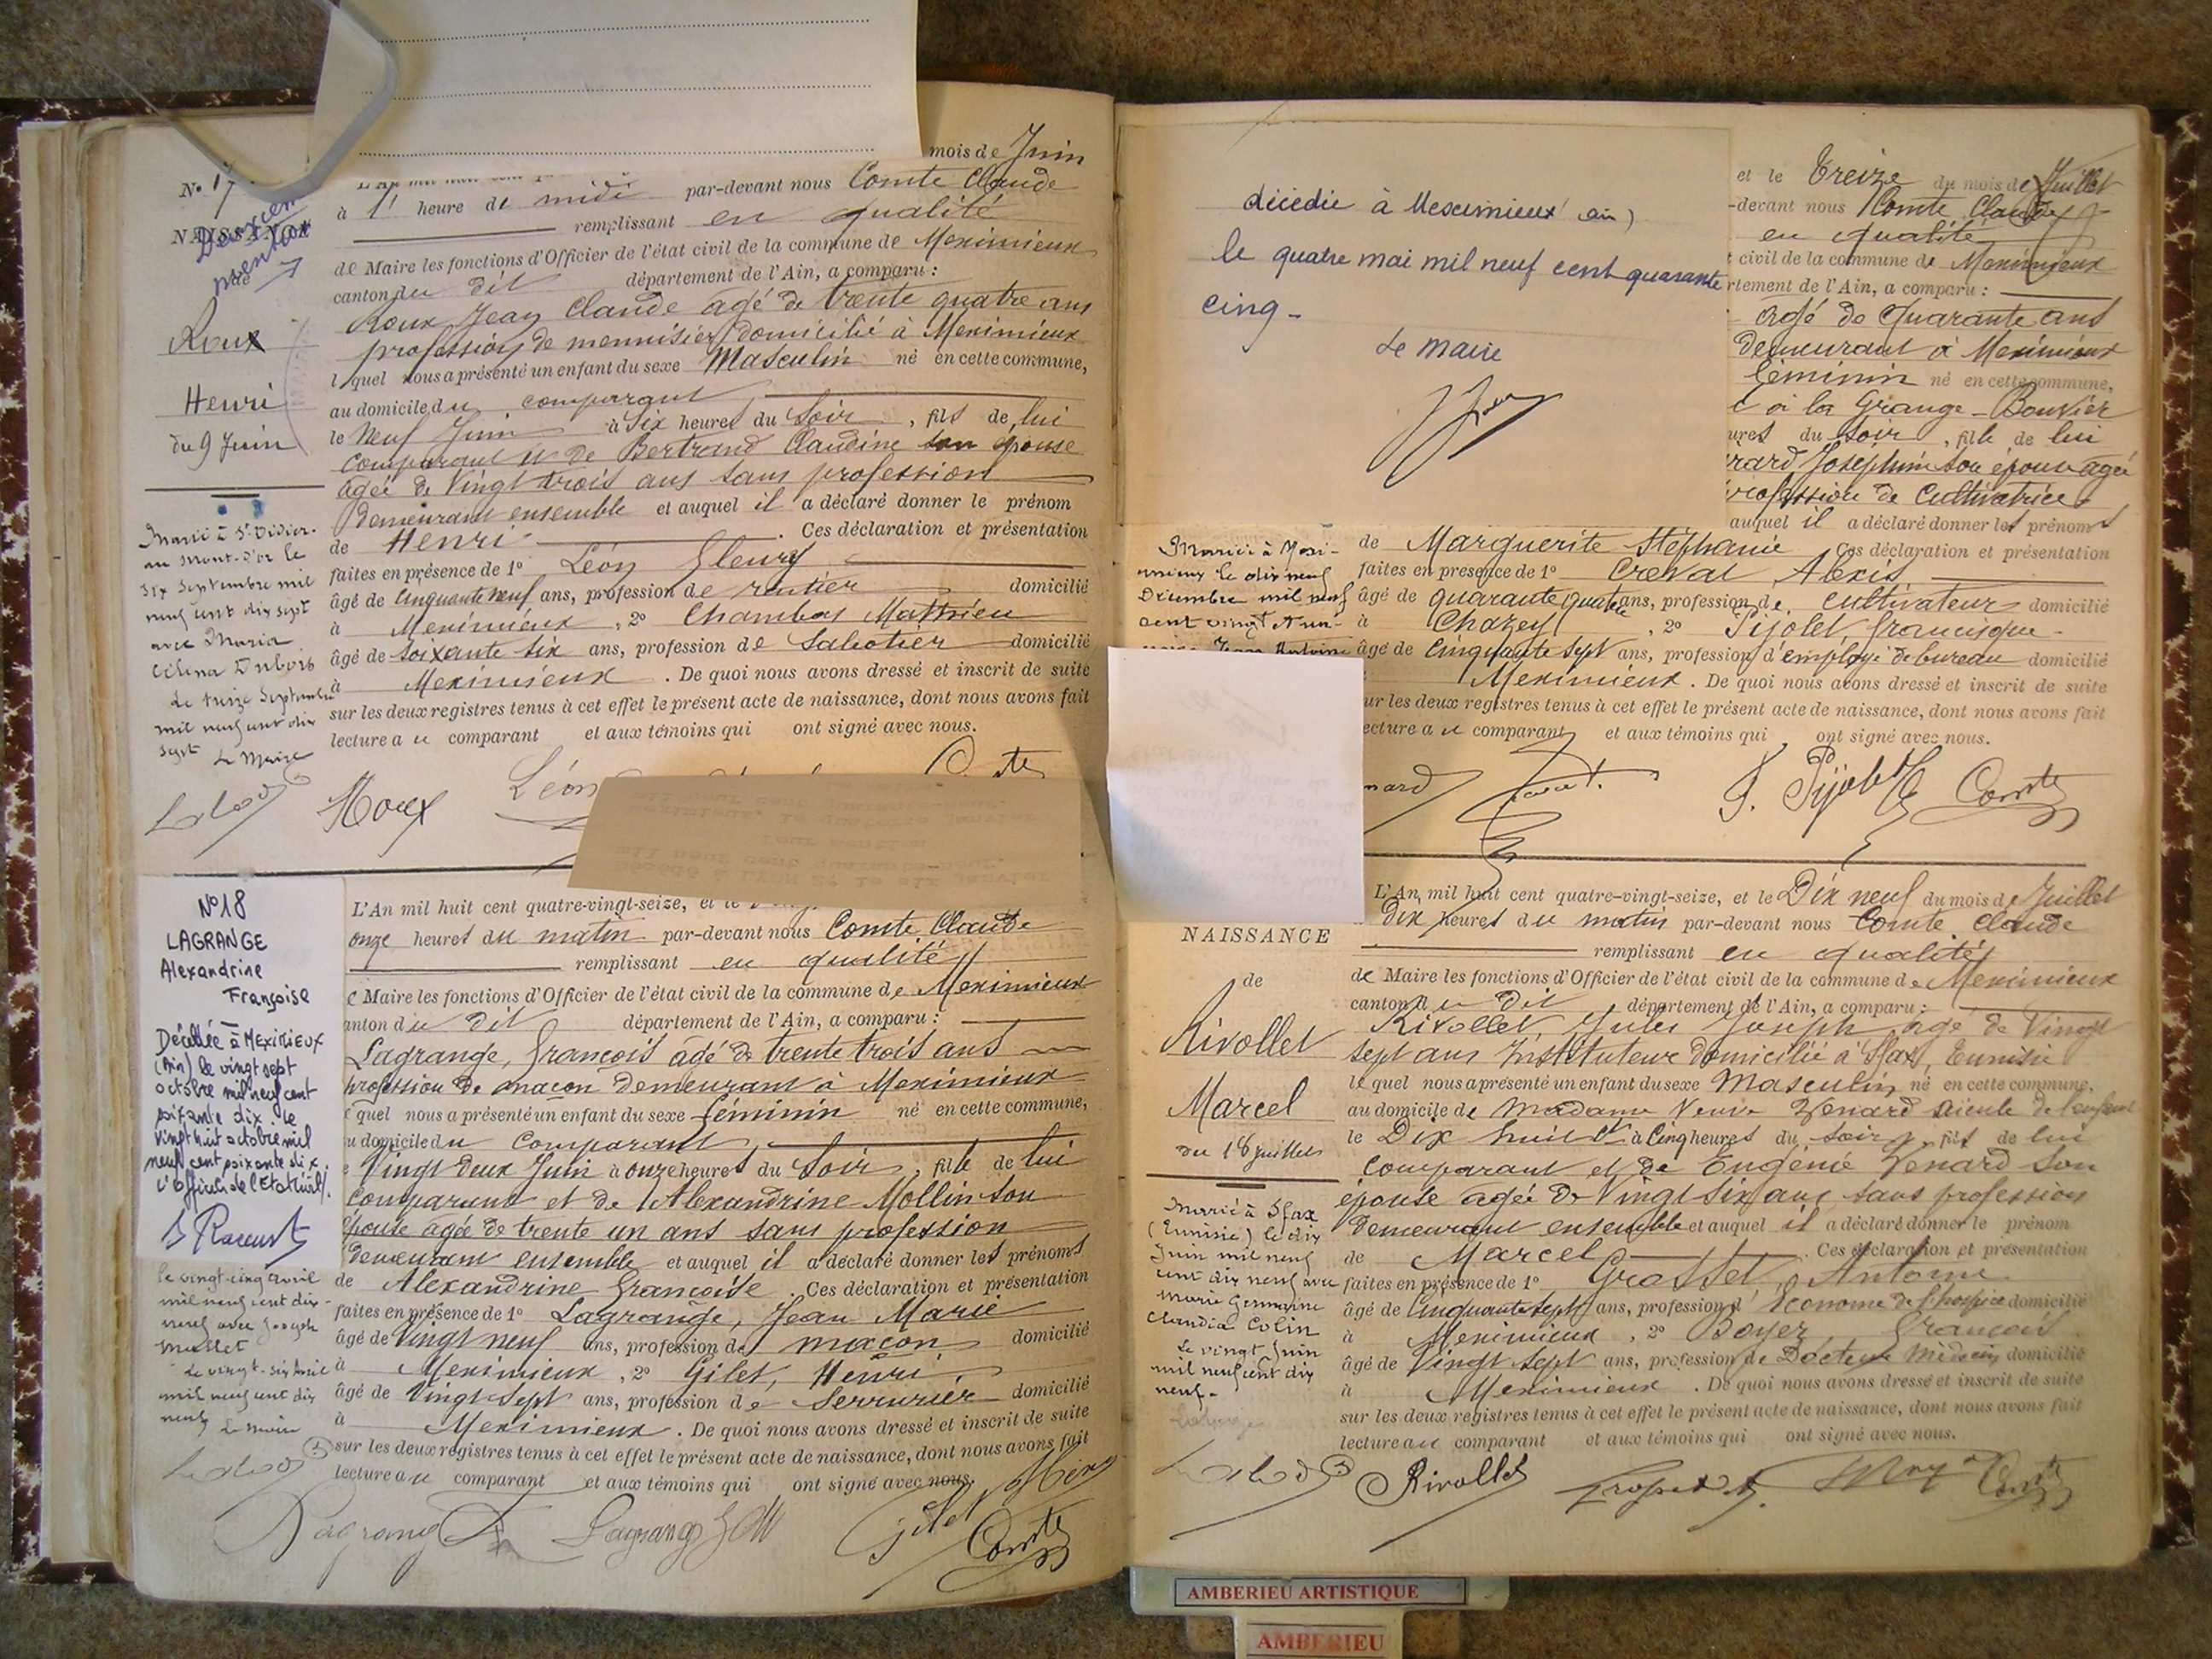 mois de Juin
No 17
NAISSANCE
Deuxième
prénom
de
Roux
Henri
du 9 Juin
à 1 heure de midi par-devant nous Comte Claude
remplissant en qualité
de Maire les fonctions d'Officier de l'état civil de la commune de Meximieux
canton du dit département de l'Ain, a comparu :
Roux Jean Claude agé de trente quatre ans
profession de menuisier domicilié à Meximieux
lequel nous a présenté un enfant du sexe Masculin né en cette commune,
au domicile du comparant
le Neuf Juin à Six heures du Soir, fils de lui
comparant et de Bertrand Claudine son épouse
agée de Vingt trois ans sans profession
demeurant ensemble et auquel il a déclaré donner le prénom
de Henri. Ces déclaration et présentation
faites en présence de 1o Léon Fleury
âgé de Cinquante neuf ans, profession de rentier domicilié
à Meximieux, 2o Chambas Mathieu
âgé de soixante six ans, profession de Sabotier domicilié
à Meximieux. De quoi nous avons dressé et inscrit de suite
sur les deux registres tenus à cet effet le présent acte de naissance, dont nous avons fait
lecture au comparant et aux témoins qui ont signé avec nous.
Marié à St Didier-
au Mont-d'or le
six Septembre mil
neuf cent dix sept
avec Maria
Célina Dubois
Le treize Septembre
mil neuf cent dix
sept
Le Maire
Roux
Léon
No 18
LAGRANGE
Alexandrine
Françoise
Décédée à MEXIMIEUX
(Ain) le vingt sept
octobre mil neuf cent
soixante dix. Le
vingt huit octobre mil
neuf cent soixante dix.
L'Officier de l'Etat Civil.
le vingt-cinq avril
mil neuf cent dix-
neuf avec Joseph
Mallet
Le vingt-six avril
mil neuf cent dix
neuf
Le Maire
L'An mil huit cent quatre-vingt-seize, et le
onze heures du matin par-devant nous Comte Claude
remplissant en qualité
e Maire les fonctions d'Officier de l'état civil de la commune de Meximieux
anton du dit département de l'Ain, a comparu :
Lagrange, François agé de trente trois ans
profession de maçon demeurant à Meximieux
quel nous a présenté un enfant du sexe féminin né en cette commune,
u domicile du comparant
Vingt deux Juin à onze heures du Soir, fille de lui
comparant et de Alexandrine Mollin son
épouse agée de trente un ans sans profession
demeurant ensemble et auquel il a déclaré donner les prénoms
de Alexandrine Françoise. Ces déclaration et présentation
faites en présence de 1o Lagrange, Jean Marie
âgé de Vingt neuf ans, profession de maçon domicilié
à Meximieux, 2o Gilet, Henri
âgé de Vingt sept ans, profession de Serrurier domicilié
à Meximieux. De quoi nous avons dressé et inscrit de suite
sur les deux registres tenus à cet effet le présent acte de naissance, dont nous avons fait
lecture au comparant et aux témoins qui ont signé avec nous.
Lagrange
Lagrange
Gilet Henri
Comte
décédée à Meximieux (Ain)
le quatre mai mil neuf cent quarante
cinq -
Le Maire
et le Treize du mois de Juillet
-devant nous Comte Claude
en qualité
t civil de la commune de Meximieux
rtement de l'Ain, a comparu :
agé de Quarante ans
demeurant à Meximieux
féminin né en cette commune,
à la Grange-Bouvier
ures du soir, fille de lui
rard Joséphine son épouse agée
profession de Cultivatrice
auquel il a déclaré donner les prénoms
de Marguerite Stéphanie Ces déclaration et présentation
faites en présence de 1o Creval Alexis
âgé de quarante quatre ans, profession de cultivateur domicilié
à Chazey, 2o Pijolet, Francisque
âgé de Cinquante Sept ans, profession d'employé de bureau domicilié
Meximieux. De quoi nous avons dressé et inscrit de suite
ur les deux registres tenus à cet effet le présent acte de naissance, dont nous avons fait
ecture au comparant et aux témoins qui ont signé avec nous.
Marié à Mexi-
mieux le dix neuf
Décembre mil neuf
cent vingt et un
F. Pijolet
Comte
NAISSANCE
de
Rivollet
Marcel
du 18 Juillet
Marié à Sfax
(Tunisie) le dix
Juin mil neuf
cent dix neuf avec
Marie Germaine
Claudia Colin
Le vingt Juin
mil neuf cent dix
neuf-
L'An mil huit cent quatre-vingt-seize, et le Dix neuf du mois de Juillet
Dix heures du matin par-devant nous Comte Claude
remplissant en qualité
de Maire les fonctions d'Officier de l'état civil de la commune de Meximieux
canton du dit, département de l'Ain, a comparu :
Rivollet, Jules Joseph, agé de Vingt
sept ans Instituteur domicilié à Sfax, Tunisie
lequel nous a présenté un enfant du sexe Masculin né en cette commune,
au domicile de Madame Veuve Venard aïeule de l'enfant
le Dix huit à Cinq heures du soir, fils de lui
comparant et de Eugénie Venard son
épouse agée de Vingt Six ans, sans profession
demeurant ensemble et auquel il a déclaré donner le prénom
de Marcel. Ces déclaration et présentation
faites en présence de 1o Grosset, Antoine
âgé de Cinquante sept ans, profession d'Econome de l'hospice domicilié
à Meximieux, 2o Boyer, François
âgé de Vingt sept ans, profession de Docteur Médecin domicilié
à Meximieux. De quoi nous avons dressé et inscrit de suite
sur les deux registres tenus à cet effet le présent acte de naissance, dont nous avons fait
lecture au comparant et aux témoins qui ont signé avec nous.
Rivollet
Comte
AMBERIEU ARTISTIQUE
AMBERIEU